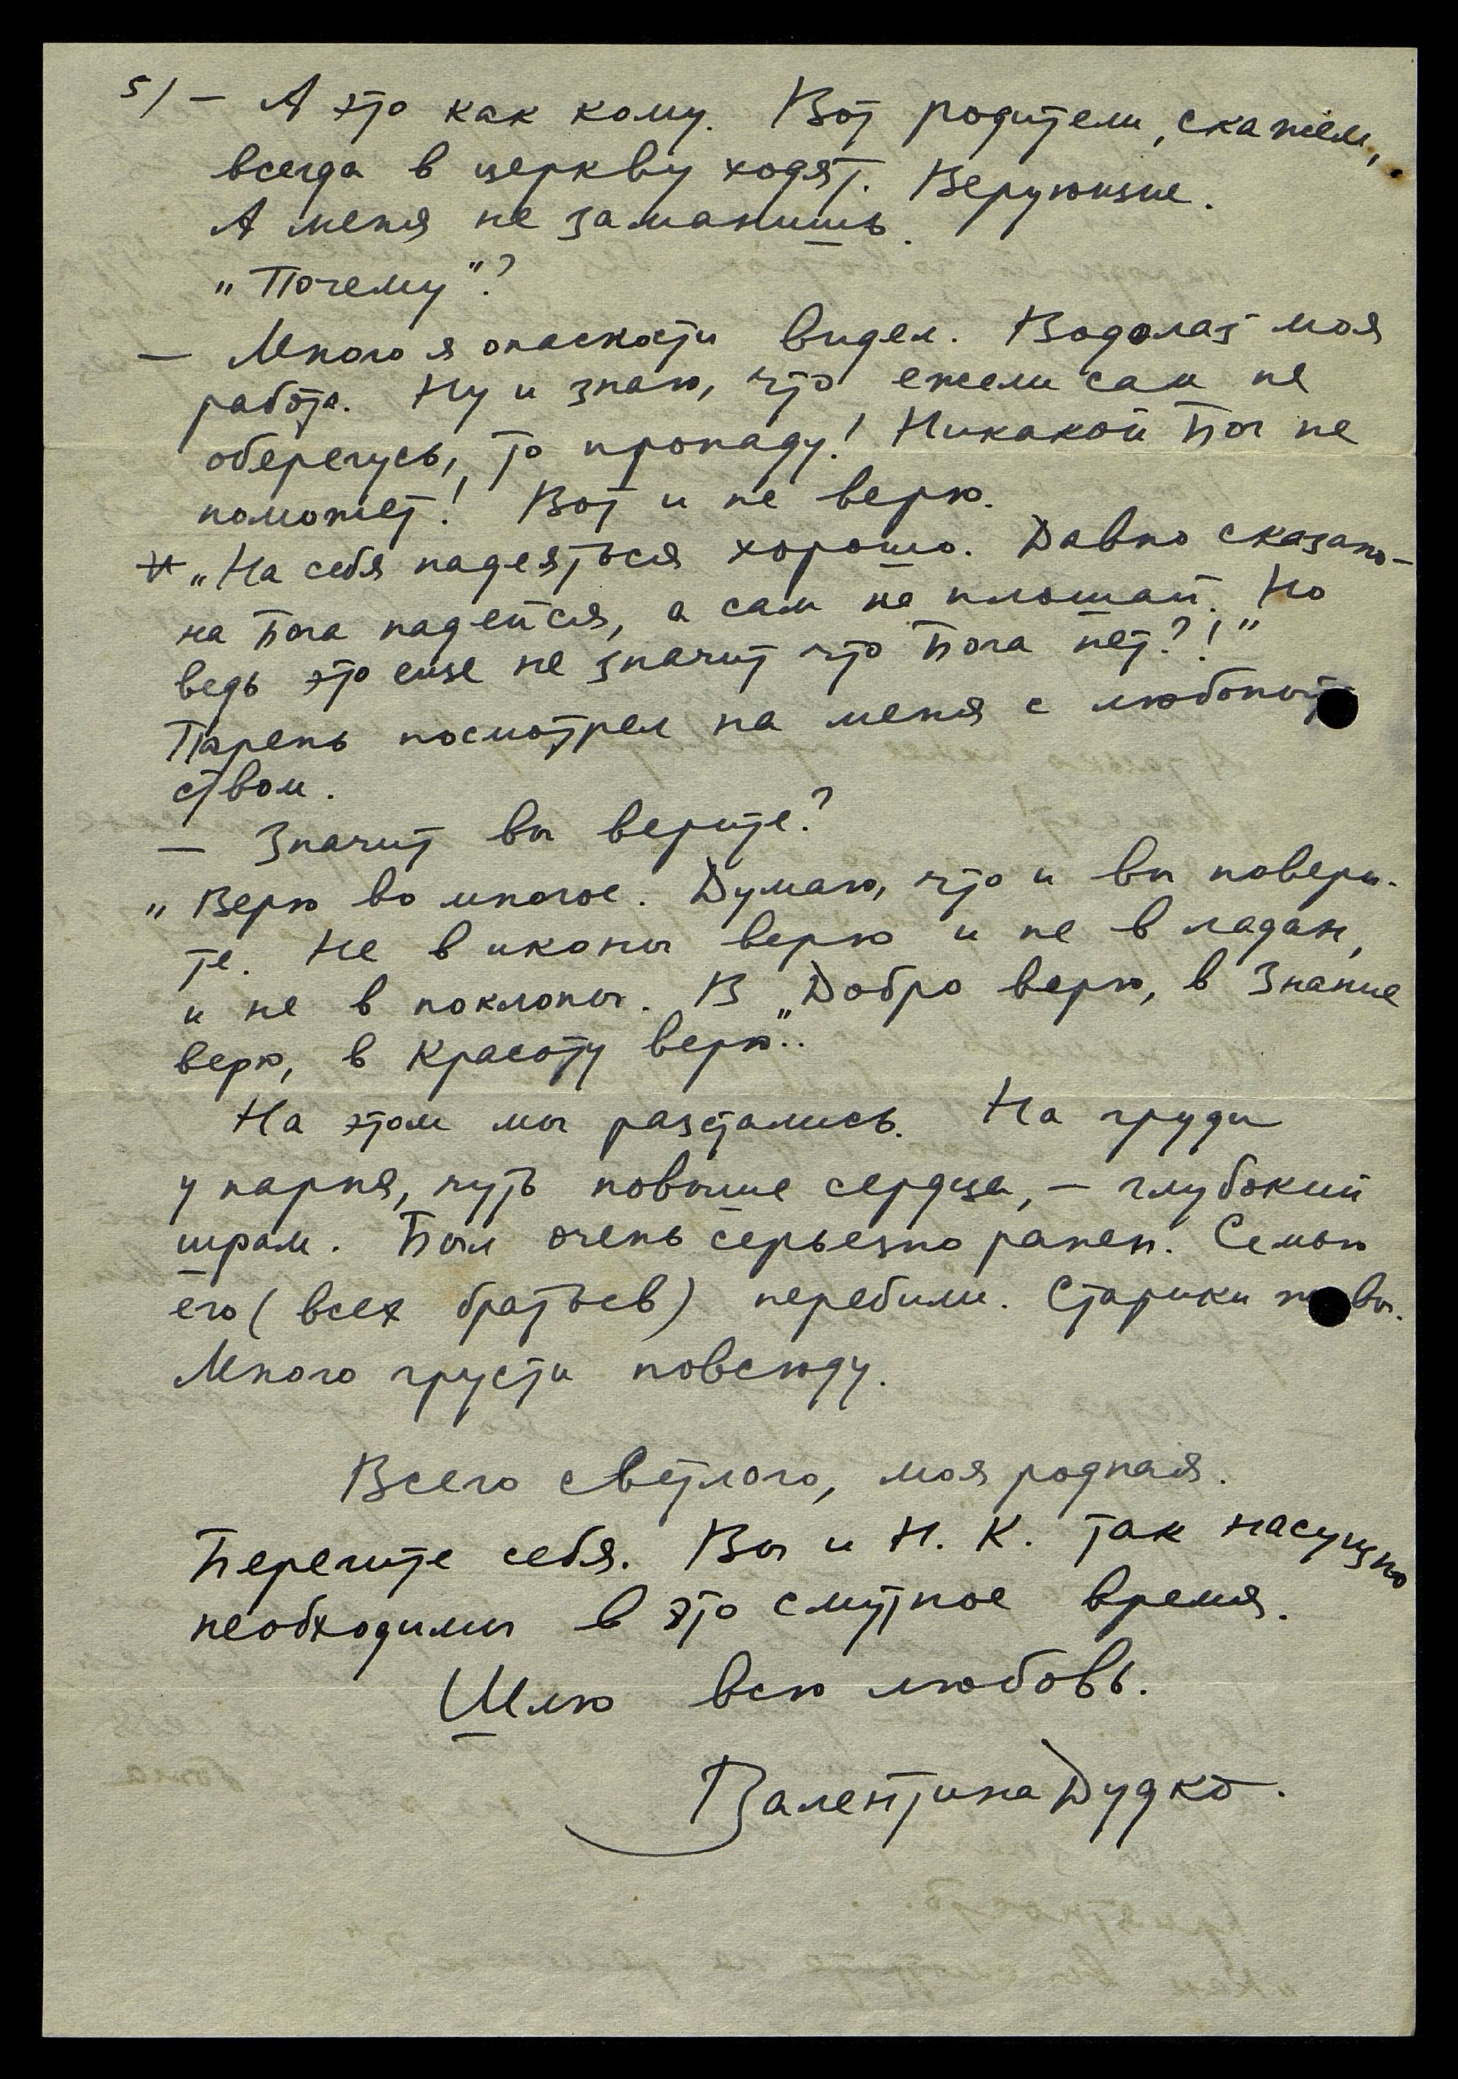 5/ — А это как кому. Вот родители, скажем,
всегда в церкву ходят. Верующие.
А меня не заманишь.
„Почему"?
— Много я опасности видел. Водолаз моя
работа. Ну и знаю, что ежели сам не
оберегусь, то пропаду! Никакой Бог не
поможет! Вот и не верю.
„На себя надеяться хорошо. Давно сказано —
на Бога надейся, а сам не плошай. Но
ведь это еще не значит что Бога нет?!"
Парень посмотрел на меня с любопыт
ством.
— Значит вы верите?
„Верю во многое. Думаю, что и вы повери-
те. Не в иконы верю и не в ладан,
и не в поклоны. В Добро верю, в Знание
верю, в Красоту верю"..
На этом мы разстались. На груди
у парня, чуть повыше сердца, — глубокий
шрам. Был очень серьезно ранен. Семью
его (всех братьев) перебили. Старики живы.
Много грусти повсюду.
Всего светлого, моя родная.
Берегите себя. Вы и Н. К. так насущно
необходимы в это смутное время.
Шлю всю любовь.
Валентина Дудко.